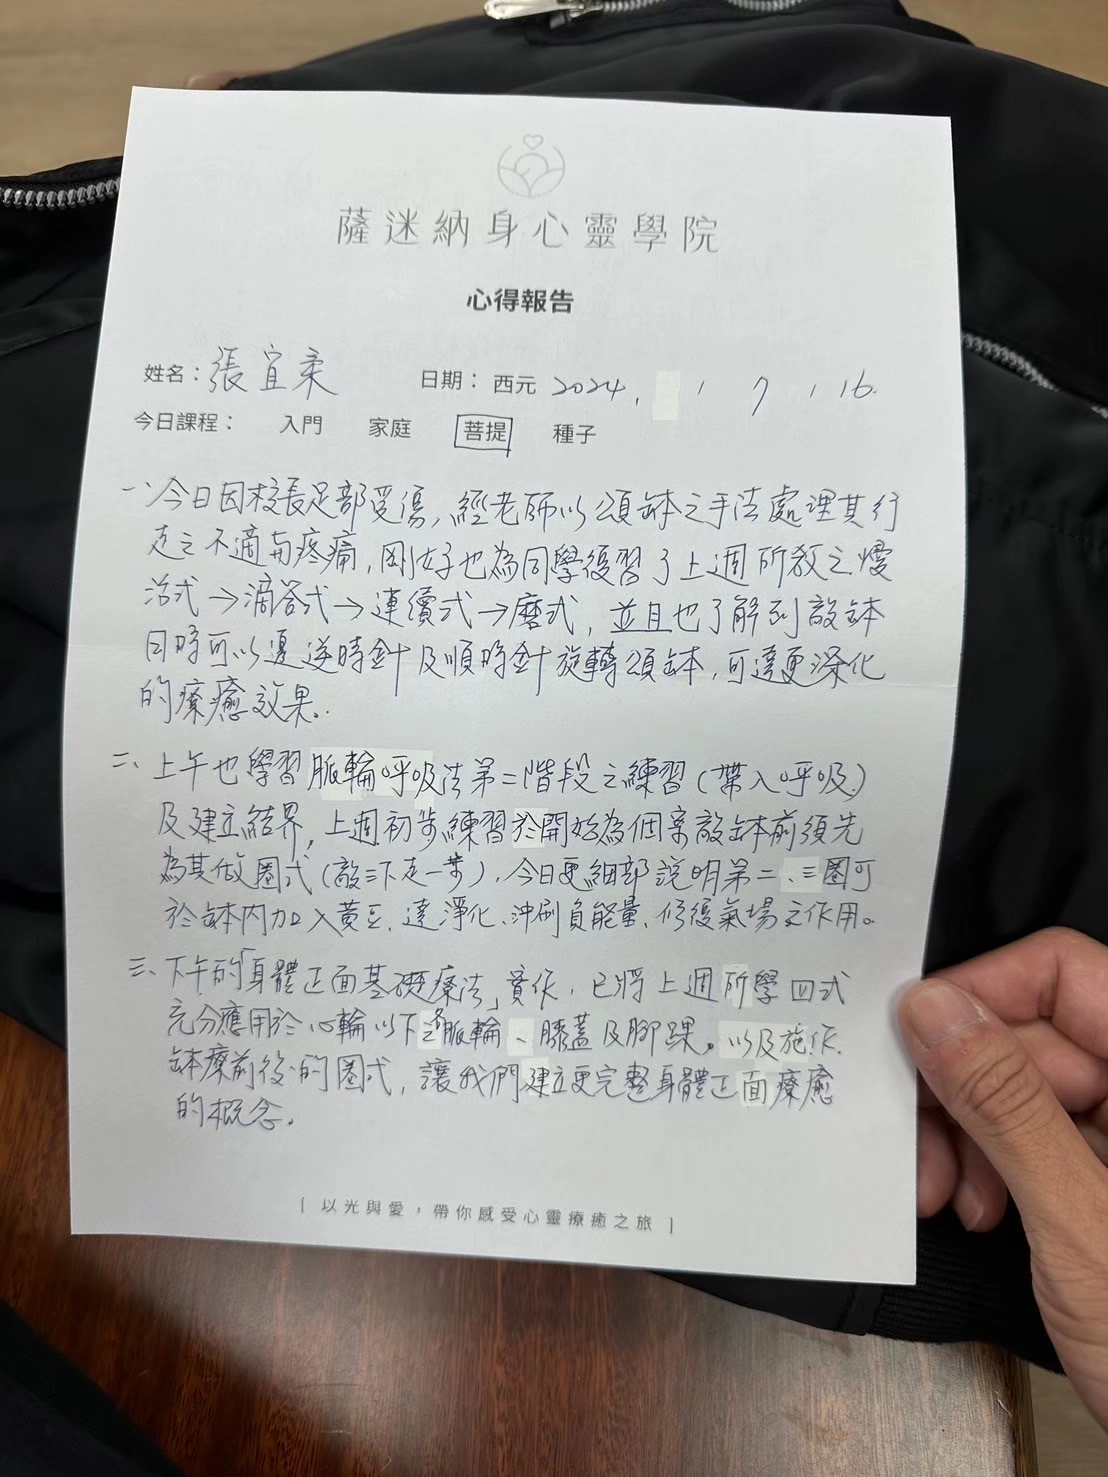 薩迷納身心靈學院
心得報告
姓名：張宜柔 日期： 西元 2024, / 7 / 16.
今日課程： 入門 家庭 菩提 種子
一、今日因校長足部受傷，經老師以頌缽之手法處理其行
走之不適與疼痛，剛好也為同學復習了上週所教之煖
活式→滴答式→連續式→磨式，並且也了解到敲缽
同時可以邊逆時針及順時針旋轉頌缽，可達更深化
的療癒效果。
二、上午也學習脈輪呼吸法第二階段之練習(帶入呼吸)
及建立結界，上週初步練習於開始為個案敲缽前須先
為其做圈式(敲三下走一步)，今日更細部說明第二、三圈可
於缽內加入黃豆，達淨化、沖刷負能量、修復氣場之作用。
三、下午的「身體正面基礎療法」實作，已將上週所學四式
充分應用於心輪以下之脈輪、膝蓋及腳踝。以及施作
缽療前後的圈式，讓我們建立更完整身體正面療癒
的概念。
[ 以光與愛，帶你感受心靈療癒之旅 ]